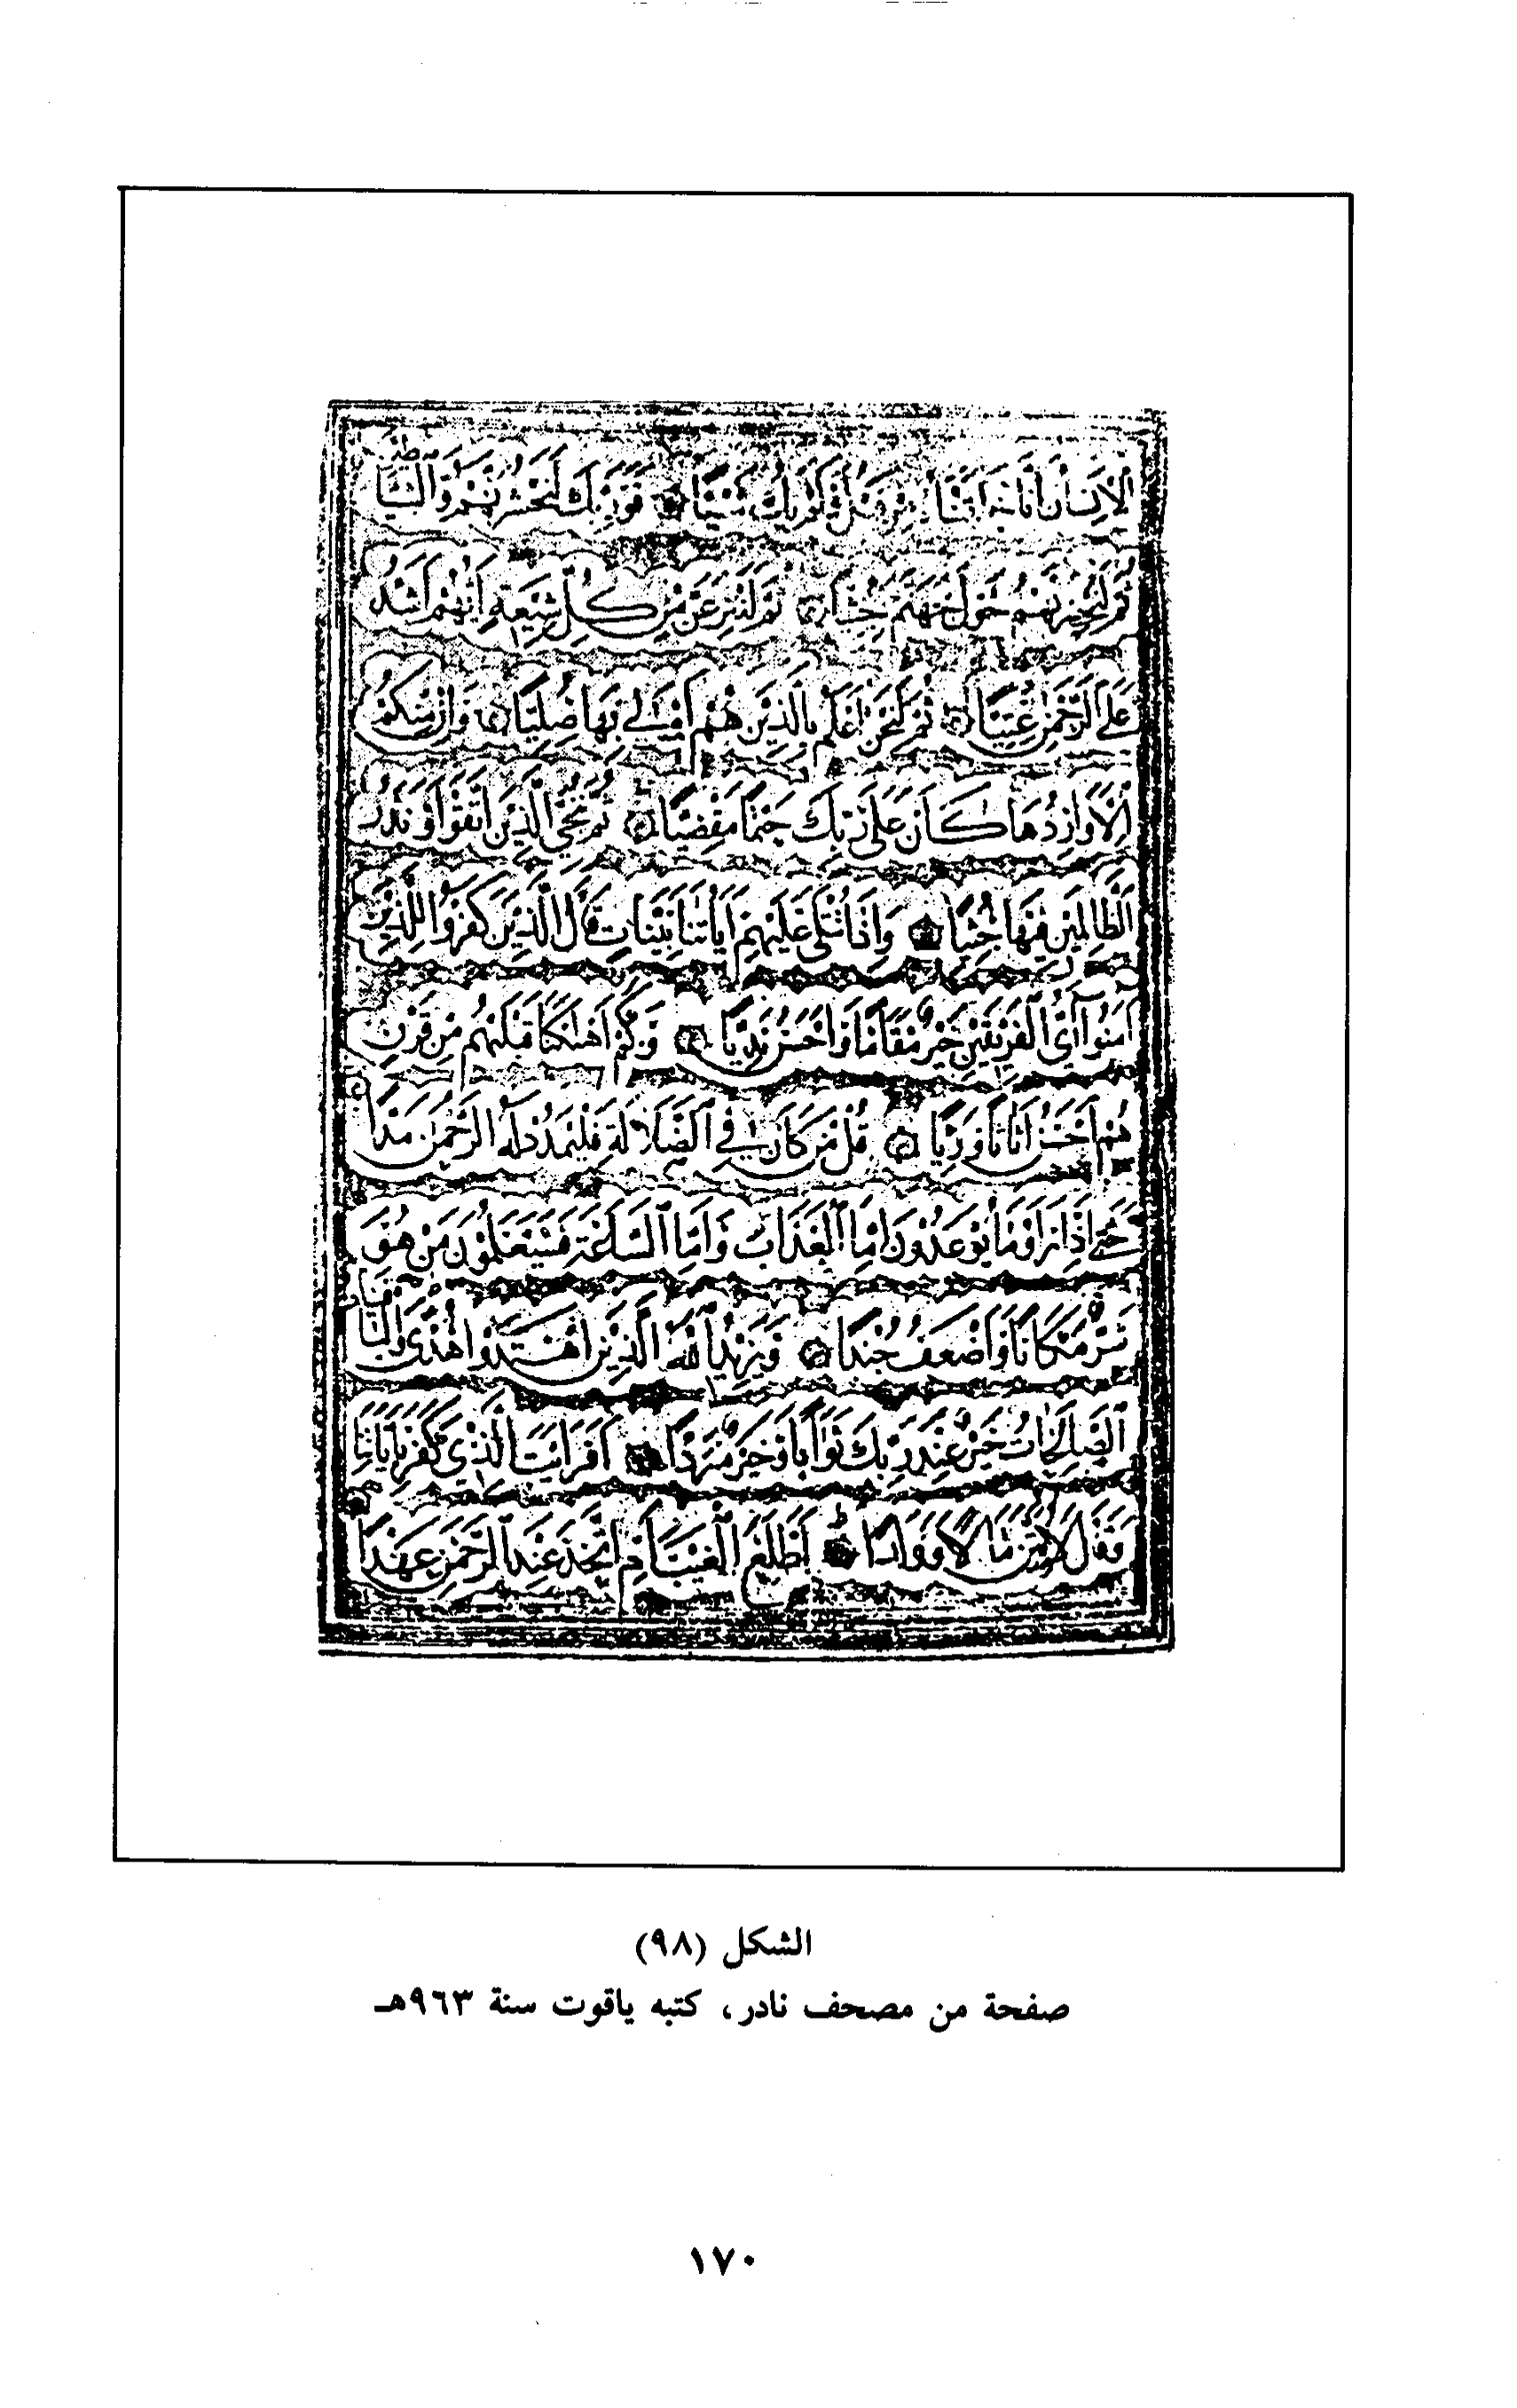 الْإِنْسَانُ أَنَّا خَلَقْنَاهُ مِنْ قَبْلُ وَلَمْ يَكُ شَيْئًا فَوَرَبِّكَ لَنَحْشُرَنَّهُمْ وَالشَّيَاطِينَ
ثُمَّ لَنُحْضِرَنَّهُمْ حَوْلَ جَهَنَّمَ جِثِيًّا ثُمَّ لَنَنْزِعَنَّ مِنْ كُلِّ شِيعَةٍ أَيُّهُمْ أَشَدُّ
عَلَى الرَّحْمَنِ عِتِيًّا ثُمَّ لَنَحْنُ أَعْلَمُ بِالَّذِينَ هُمْ أَوْلَى بِهَا صِلِيًّا وَإِنْ مِنْكُمْ
إِلَّا وَارِدُهَا كَانَ عَلَى رَبِّكَ حَتْمًا مَقْضِيًّا ثُمَّ نُنَجِّي الَّذِينَ اتَّقَوْا وَنَذَرُ
الظَّالِمِينَ فِيهَا جِثِيًّا وَإِذَا تُتْلَى عَلَيْهِمْ آيَاتُنَا بَيِّنَاتٍ قَالَ الَّذِينَ كَفَرُوا لِلَّذِينَ
آمَنُوا أَيُّ الْفَرِيقَيْنِ خَيْرٌ مَقَامًا وَأَحْسَنُ نَدِيًّا وَكَمْ أَهْلَكْنَا قَبْلَهُمْ مِنْ قَرْنٍ
هُمْ أَحْسَنُ أَثَاثًا وَرِئْيًا قُلْ مَنْ كَانَ فِي الضَّلَالَةِ فَلْيَمْدُدْ لَهُ الرَّحْمَنُ مَدًّا
حَتَّى إِذَا رَأَوْا مَا يُوعَدُونَ إِمَّا الْعَذَابَ وَإِمَّا السَّاعَةَ فَسَيَعْلَمُونَ مَنْ هُوَ
شَرٌّ مَكَانًا وَأَضْعَفُ جُنْدًا وَيَزِيدُ اللَّهُ الَّذِينَ اهْتَدَوْا هُدًى وَالْبَاقِيَاتُ
الصَّالِحَاتُ خَيْرٌ عِنْدَ رَبِّكَ ثَوَابًا وَخَيْرٌ مَرَدًّا أَفَرَأَيْتَ الَّذِي كَفَرَ بِآيَاتِنَا
وَقَالَ لَأُوتَيَنَّ مَالًا وَوَلَدًا أَطَّلَعَ الْغَيْبَ أَمِ اتَّخَذَ عِنْدَ الرَّحْمَنِ عَهْدًا
الشكل (٩٨)
صفحة من مصحف نادر، كتبه ياقوت سنة ٩٦٣هـ
١٧٠